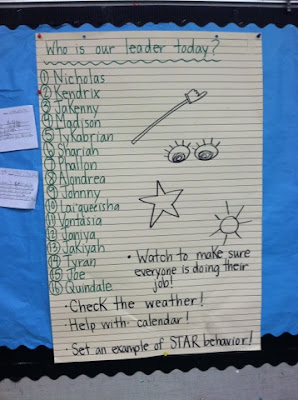 Who is our leader today?
① Nicholas
② Kendrix
③ Jakenny
④ Madison
⑤ Tykabrian
⑥ Shariah
⑦ Phallon
⑧ Alondrea
⑨ Johnny
⑩ Tai'querisha
⑪ Vontasia
⑫ Janiya
⑬ Jakiyah
⑭ Tyran
⑮ Joe
⑯ Quindale
• Watch to make sure
everyone is doing their
job!
• Check the weather!
• Help with calendar!
• Set an example of STAR behavior!